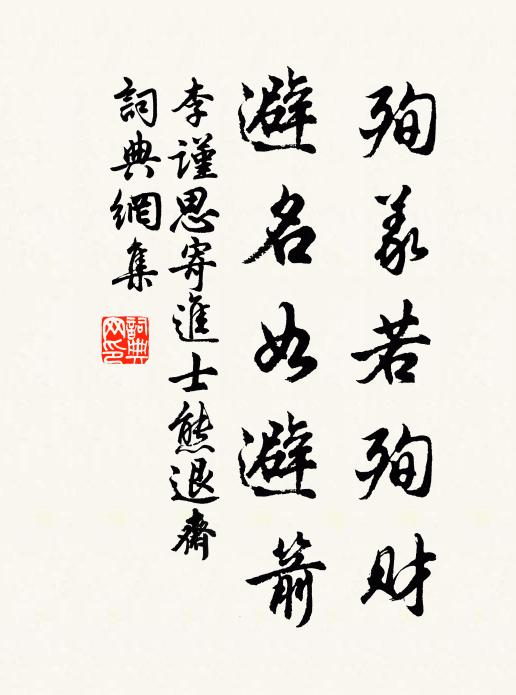 殉義若殉財
避名如避箭
李謹思寄進士熊退齋
詞典網集
詞典网印